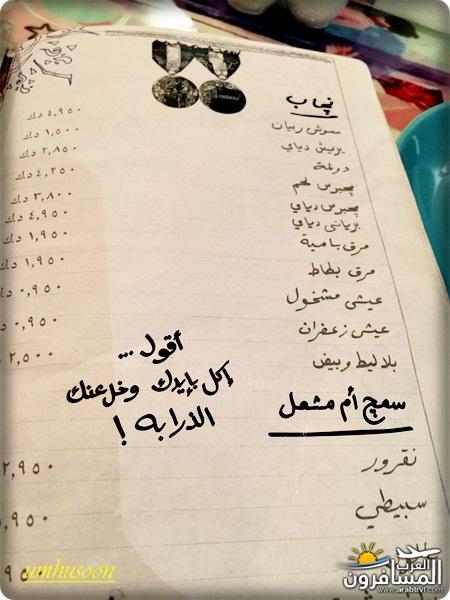 نچاب
مموش ربيان ٤,٩٥٠ د.ك
برييش دياي ١,٥٠٠ د.ك
دولمة ٢,٨٥٠ د.ك
مچبوس لحم ٤,٢٥٠ د.ك
مچبوس دياي ٣,٨٠٠ د.ك
برياني دياي ٤,٩٥٠ د.ك
مرق بامية ١,٩٥٠ د.ك
مرق بطاط ١,٩٥٠ د.ك
عيش مشخول ٠,٩٥٠ د.ك
عيش زعفران ٠,٩٥٠ د.ك
بلاليط وبيض ٢,٥٠٠
أقول ...
إكل بإيدك وخل عنك
الذرابه !
سمچ أم مشعل
نقرور ٢,٩٥٠
سبيطي ,٩٥٠
٩٥٠
umhusoon
العرب
المسافرون
www.arabtrvl.com